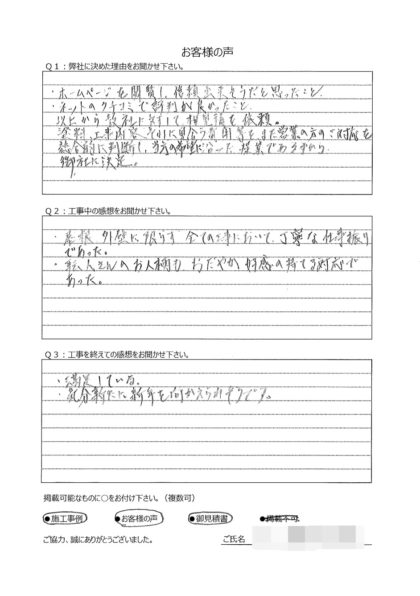 お客様の声
Q1：弊社に決めた理由をお聞かせ下さい。
・ホームページを閲覧し、信頼出来そうだと思ったこと
・ネットのクチコミで評判が良かったこと
以上から数社に対して相見積を依頼。
塗料、工事内容、それに見合う費用等、また営業の方のご対応を
総合的に判断し、当方の希望に沿った提案であり
御社に決定。
Q2：工事中の感想をお聞かせ下さい。
・屋根、外壁に限らず全ての工事において、丁寧な仕事振り
であった。
・職人さんのお人柄もおだやか好感の持てる対応で
あった。
Q3：工事を終えての感想をお聞かせ下さい。
・満足している。
・気分新たに新年を迎えられそうです。
掲載可能なものに○をお付け下さい。（複数可）
●施工事例
●お客様の声
●御見積書
●掲載不可
ご協力、誠にありがとうございました。
ご氏名